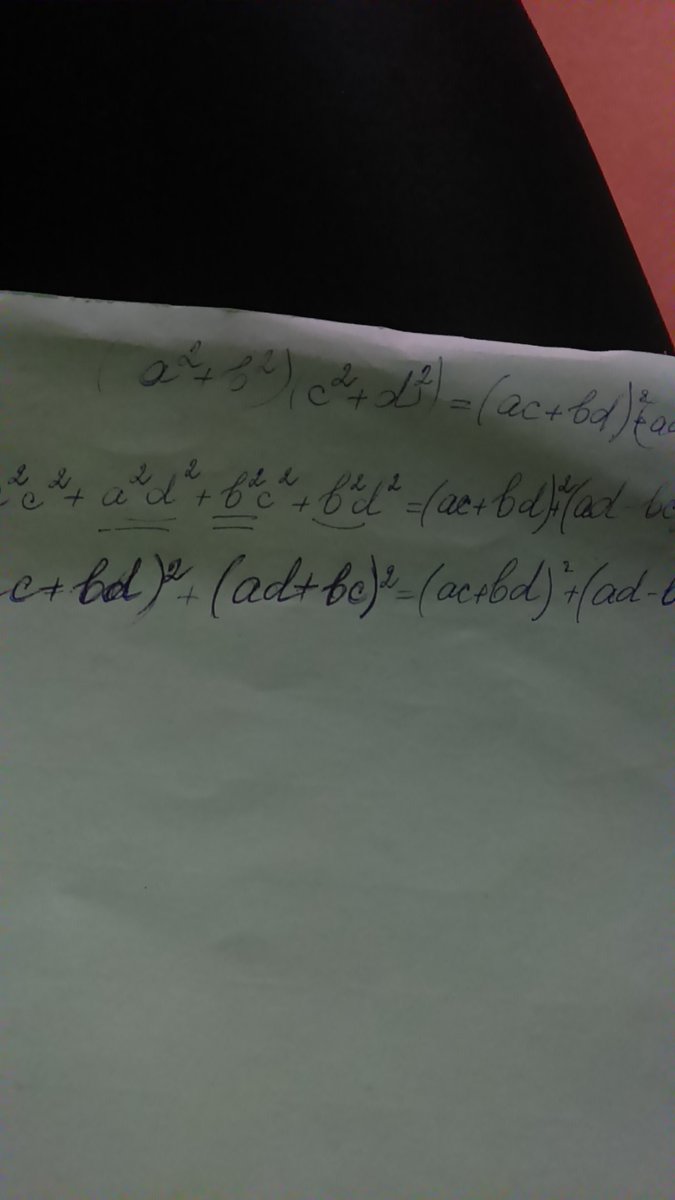 (a²+b²)(c²+d²)=(ac+bd)²+(ad
²c²+a²d²+b²c²+b²d²=(ac+bd)²+(ad-bc
c+bd)²+(ad+bc)²=(ac+bd)²+(ad-b